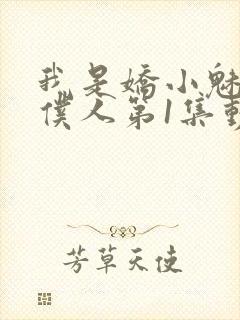 我是嬌小魅
僕人第1集動
芳草天使